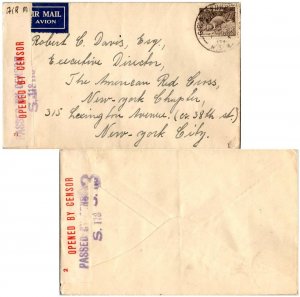 AIR MAIL
PAR AVION
Robert C. Davis, Esq.,
Executive Director,
The American Red Cross,
New-york Chapter,
315 Lexington Avenue. (or 38th st)
New-York City.
OPENED BY CENSOR
PASSED
S. 118
2 OPENED BY CENSOR
PASSED BY
S. 118